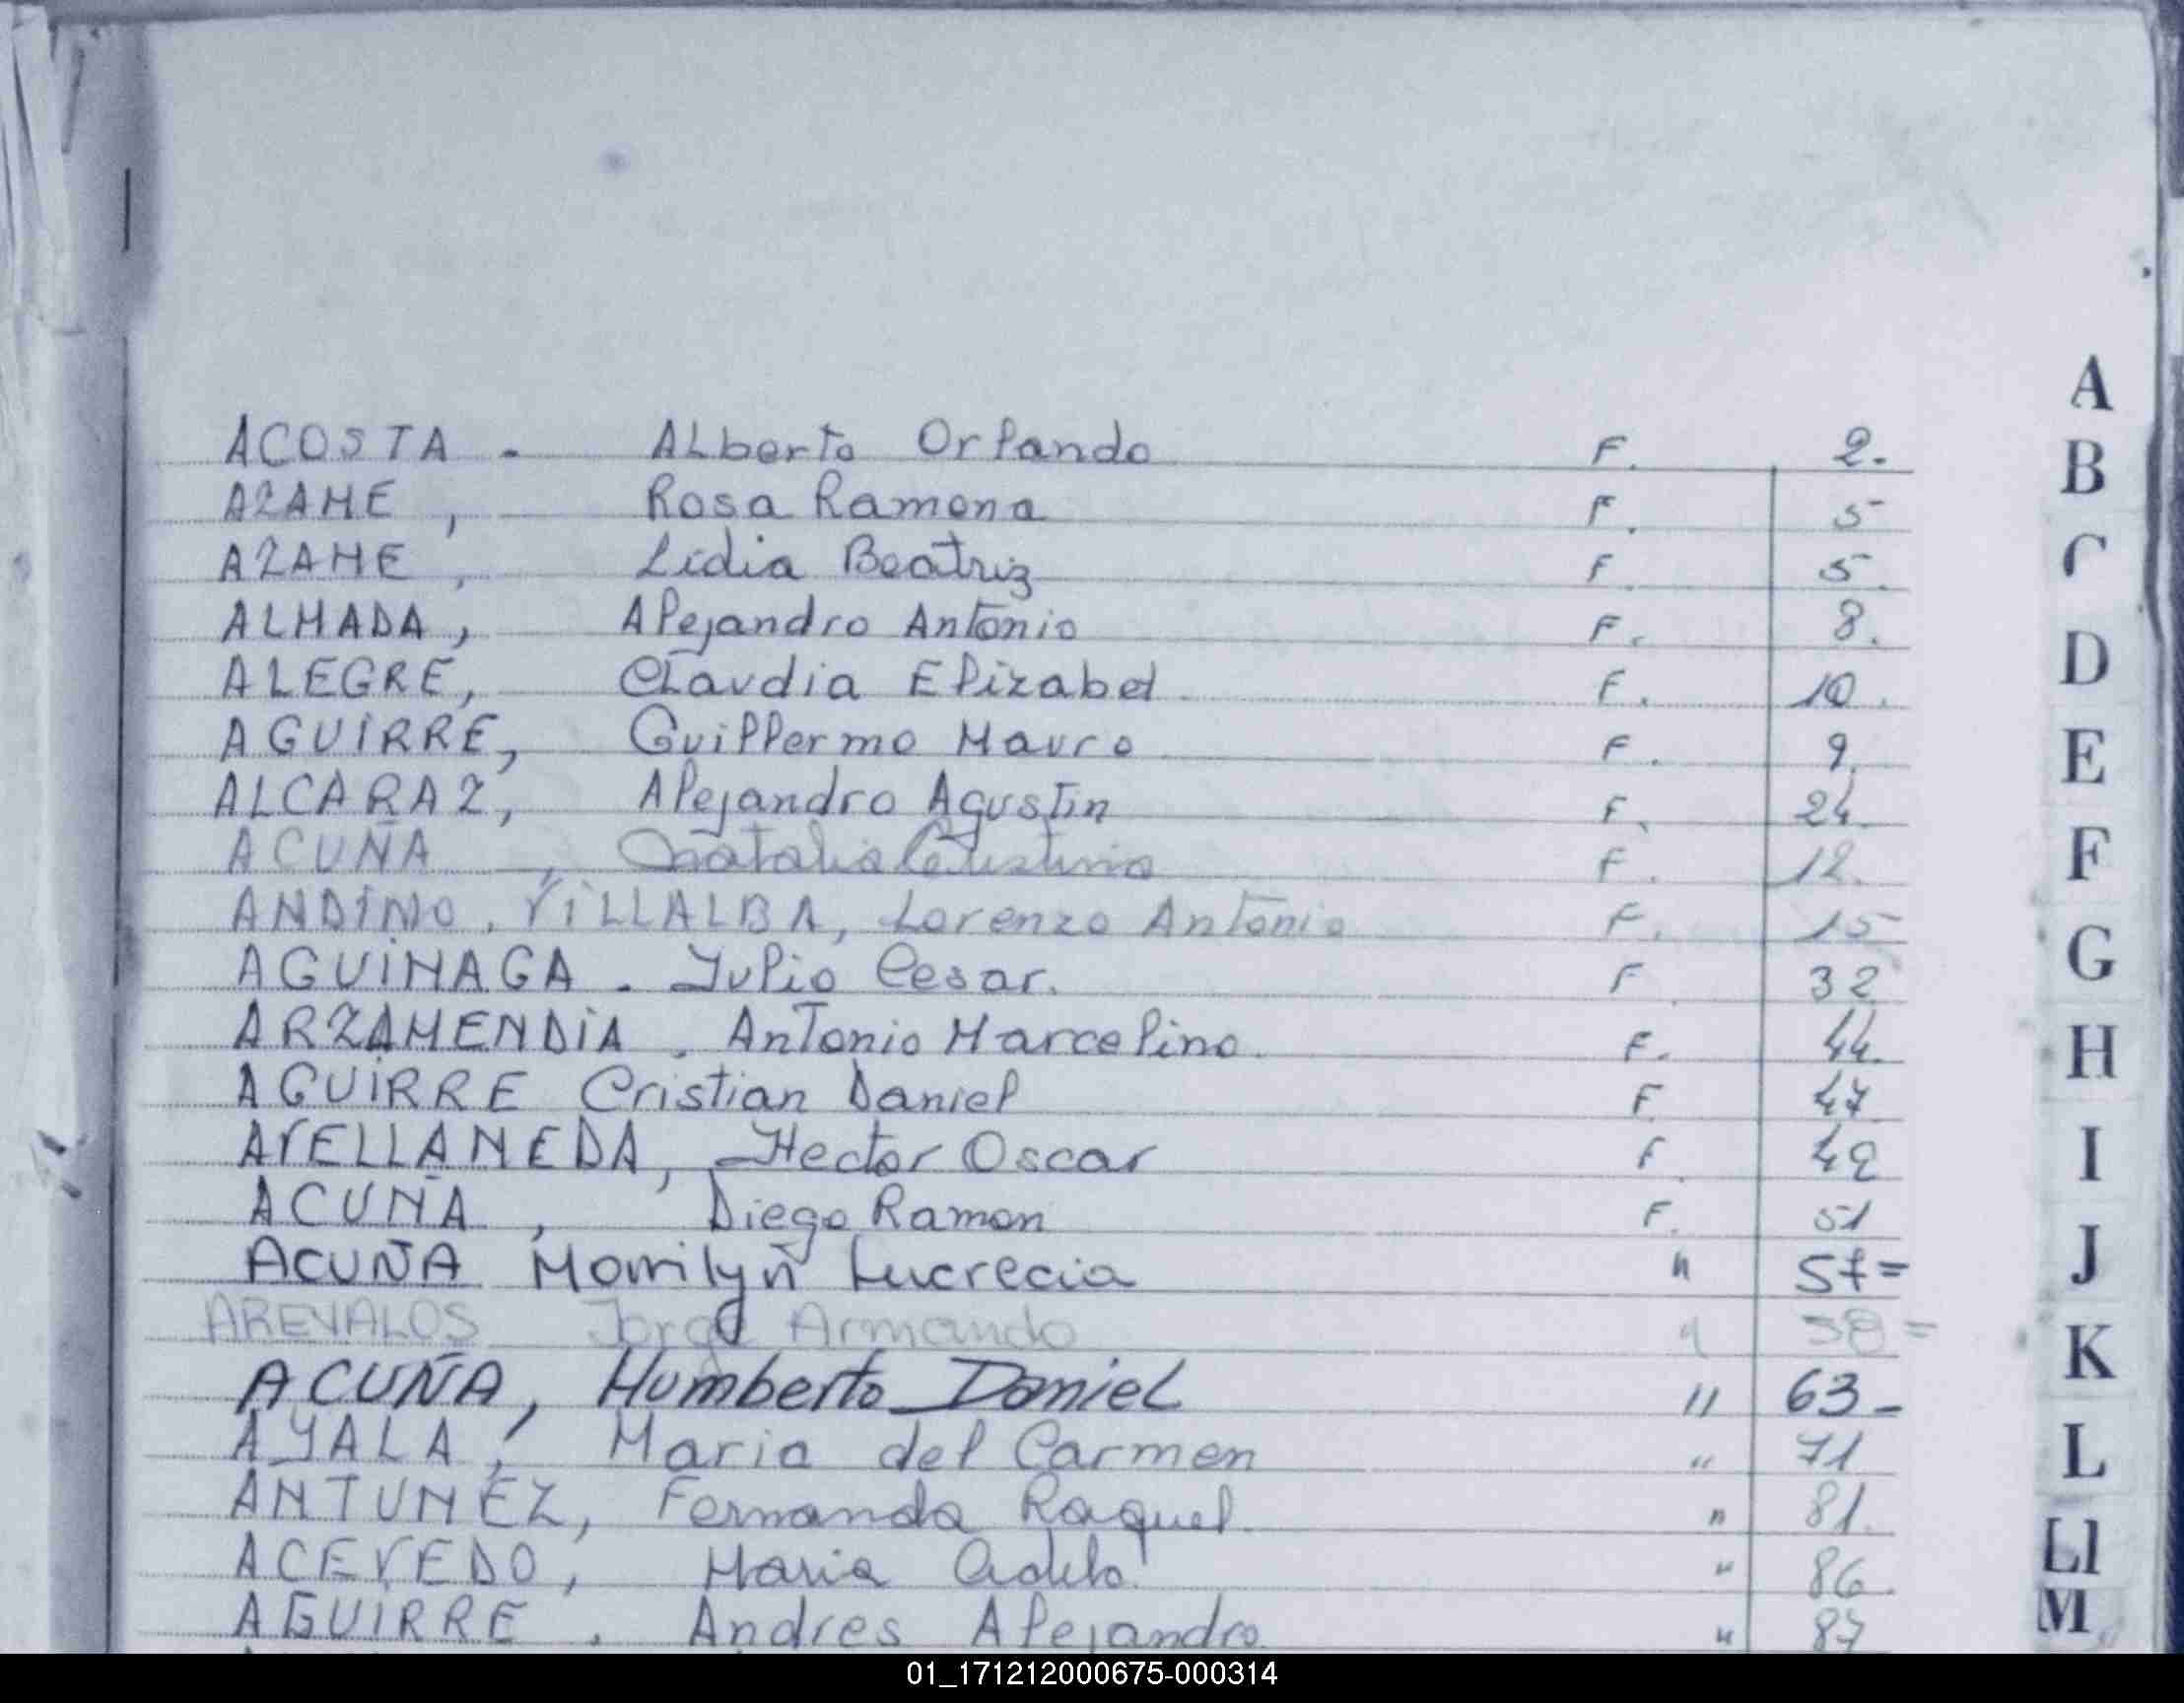 ACOSTA - Alberto Orlando F. 2.
AZAME, Rosa Ramona F. 5
AZAME, Lidia Beatriz F. 5.
ALMADA, Alejandro Antonio F. 8.
ALEGRE, Claudia Elizabet F. 10.
AGUIRRE, Guillermo Mauro F. 9.
ALCARAZ, Alejandro Agustin F. 24.
ACUÑA, Natalia Celestina F. 12.
ANDINO, VILLALBA, Lorenzo Antonio F. 15
AGUINAGA. Julio Cesar. F 32
ARZAMENDIA, Antonio Marcelino. F. 44.
AGUIRRE Cristian Daniel F. 47
AVELLANEDA, Hector Oscar F. 49
ACUÑA, Diego Ramon F. 51
ACUÑA Marrilyn Lucrecia " 57=
AREVALOS Jorge Armando " 58=
ACUÑA, Humberto Daniel " 63-
AYALA, Maria del Carmen " 71
ANTUNEZ, Fernanda Raquel " 81.
ACEVEDO, Maria Adela " 86.
AGUIRRE. Andres Alejandro " 87
A
B
C
D
E
F
G
H
I
J
K
L
Ll
M
01_171212000675-000314